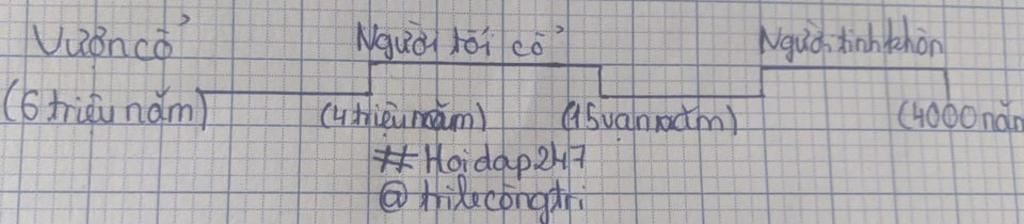 Vượn cổ Người tối cổ Người tinh khôn
(6 triệu năm) (4 triệu năm) (15 vạn năm) (4000 năm
#Hoidap247
@trilecôngtri